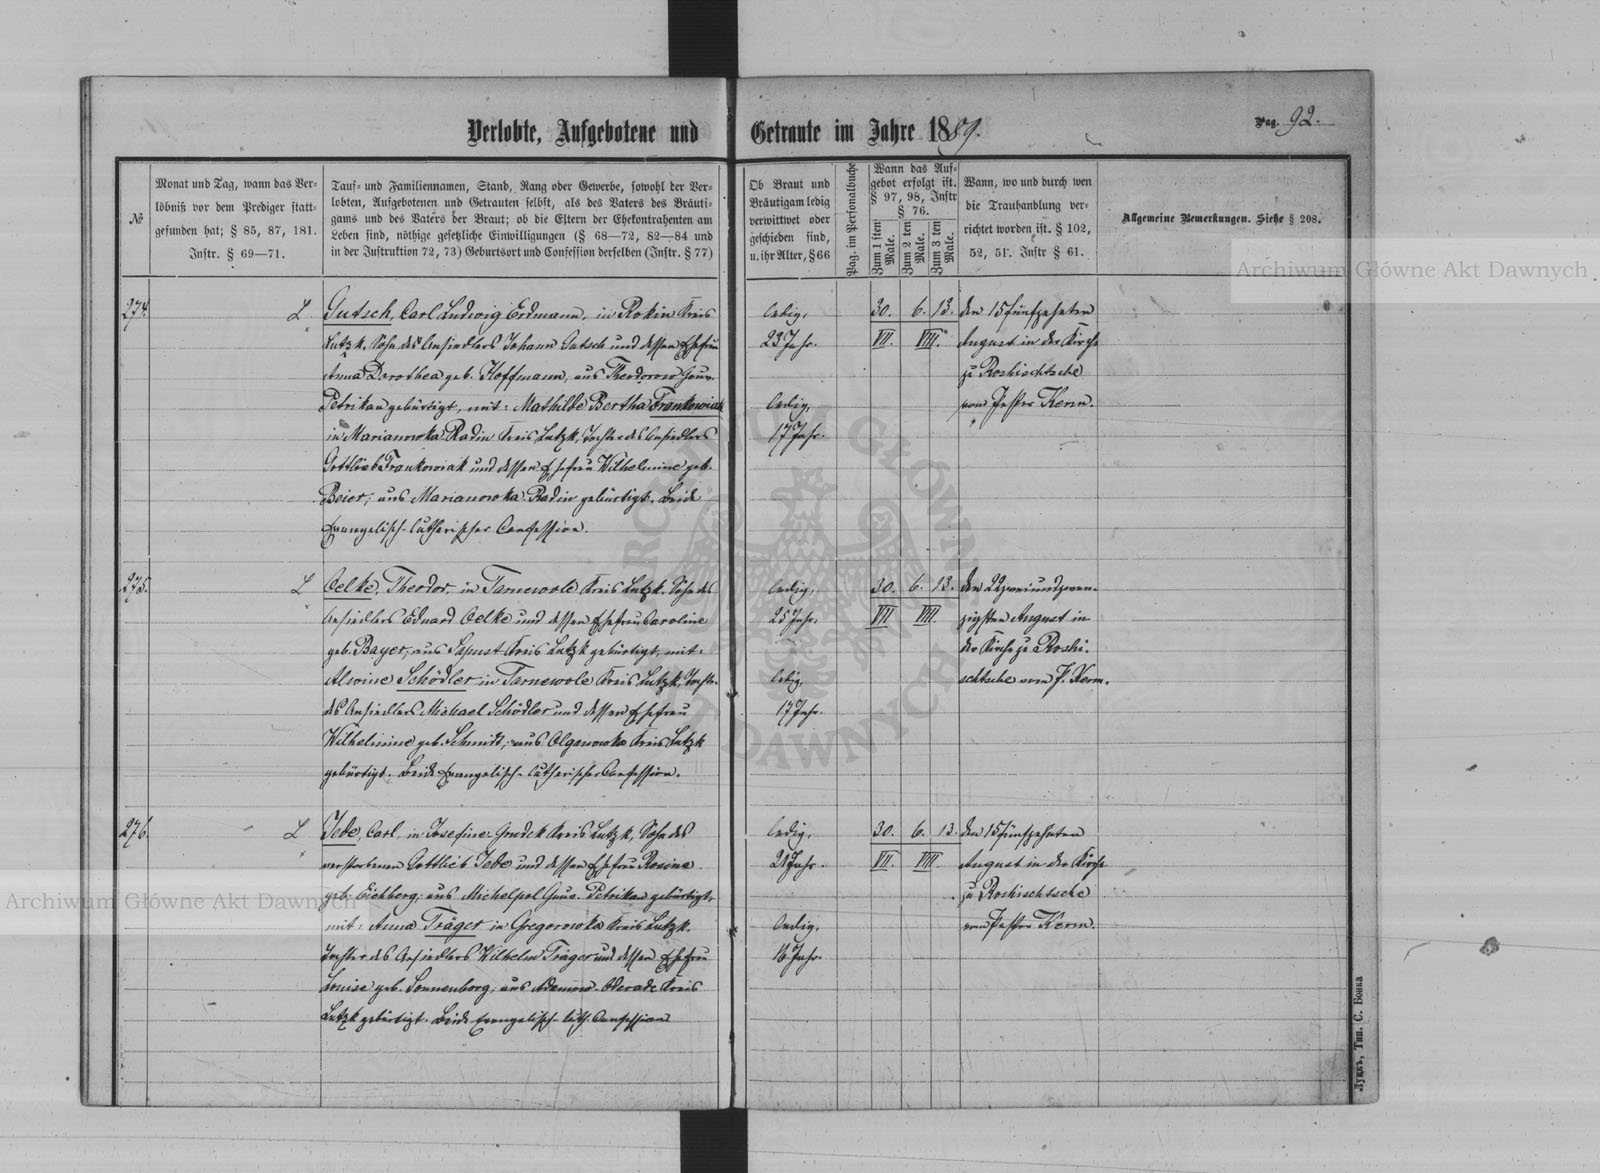 Verlobte, Aufgebotene und Getraute im Jahre 1889.
Pag. 92.
№
Monat und Tag, wann das Ver-
löbniß vor dem Prediger statt-
gefunden hat; § 85, 87, 181.
Instr. § 69—71.
Tauf- und Familiennamen, Stand, Rang oder Gewerbe, sowohl der Ver-
lobten, Aufgebotenen und Getrauten selbst, als des Vaters des Bräuti-
gams und des Vaters der Braut; ob die Eltern der Ehekontrahenten am
Leben sind, nöthige gesetzliche Einwilligungen (§ 68—72, 82—84 und
in der Instruktion 72, 73) Geburtsort und Confession derselben (Instr. § 77)
Ob Braut und
Bräutigam ledig
verwittwet oder
geschieden sind,
u. ihr Alter, § 66
Pag. im Personalbuche
Wann das Auf-
gebot erfolgt ist.
§ 97, 98, Instr
§ 76.
Zum 1 sten Male.
Zum 2 ten Male.
Zum 3 ten Male.
Wann, wo und durch wen
die Trauhandlung ver-
richtet worden ist. § 102,
52, 51. Instr § 61.
Allgemeine Bemerkungen. Siehe § 208.
274.
L
Gutsch, Carl Ludwig Erdmann, in Rokin Kreis
Lutzk, Sohn des Ansiedlers Johann Gutsch und dessen Ehefrau
Anna Dorothea geb. Hoffmann, aus Theodorow Gouv.
Petrikau gebürtigt, mit: Mathilde Bertha Frankowiak
in Marianowka-Radin Kreis Lutzk, Tochter des Ansiedlers
Gottlieb Frankowiak und dessen Ehefrau Wilhelmine geb.
Beier, aus Marianowka-Radin gebürtigt. Beide
Evangelisch-lutherischer Confession.
ledig,
23 Jahr.
ledig,
17 Jahr.
30. 6. 13.
VII. VIII.
den 15 fünfzehnten
August in der Kirche
zu Roshischtsche
vom Pastor Kerm.
275.
L
Oelke, Theodor, in Tarnewole Kreis Lutzk, Sohn des
Ansiedlers Eduard Oelke und dessen Ehefrau Caroline
geb. Bayer, aus Sapust Kreis Lutzk gebürtigt, mit:
Alwine Schödler in Tarnewole Kreis Lutzk, Tochter
des Ansiedlers Michael Schödler und dessen Ehefrau
Wilhelmine geb. Schmidt, aus Olganowka Kreis Lutzk
gebürtigt. Beide Evangelisch-lutherischer Confession.
ledig,
25 Jahr.
ledig,
17 Jahr.
30. 6. 13.
VII VIII.
den 22 zweiundzwan-
zigsten August in
der Kirche zu Roshi-
schtsche vom P. Kerm.
276.
L
Jede, Carl, in Josefine-Grudek Kreis Lutzk, Sohn des
verstorbenen Gottlieb Jede und dessen Ehefrau Rosine
geb. Eichberg, aus Michelpol Gouv. Petrikau gebürtigt,
mit: Anna Träger in Gregorowka Kreis Lutzk,
Tochter des Ansiedlers Wilhelm Träger und dessen Ehefrau
Louise geb. Sonnenberg, aus Adamow-Oderade Kreis
Lutzk gebürtigt. Beide Evangelisch-luth. Confession
ledig,
21 Jahr.
ledig,
16 Jahr.
30. 6. 13.
VII. VIII
den 15 fünfzehnten
August in der Kirche
zu Roshischtsche
vom Pastor Kerm.
Луцкъ, Тип. С. Бонка
Archiwum Główne Akt Dawnych
Archiwum Główne Akt Dawnych
ARCHIWUM GŁÓWNE AKT DAWNYCH